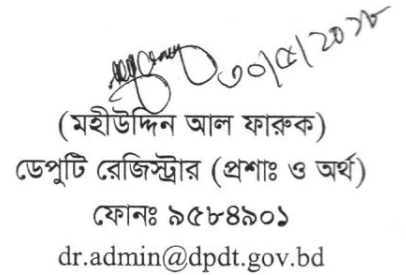 ৩০/৫/২০১৮
(মহীউদ্দিন আল ফারুক)
ডেপুটি রেজিস্ট্রার (প্রশাঃ ও অর্থ)
ফোনঃ ৯৫৮৪৯০১
dr.admin@dpdt.gov.bd